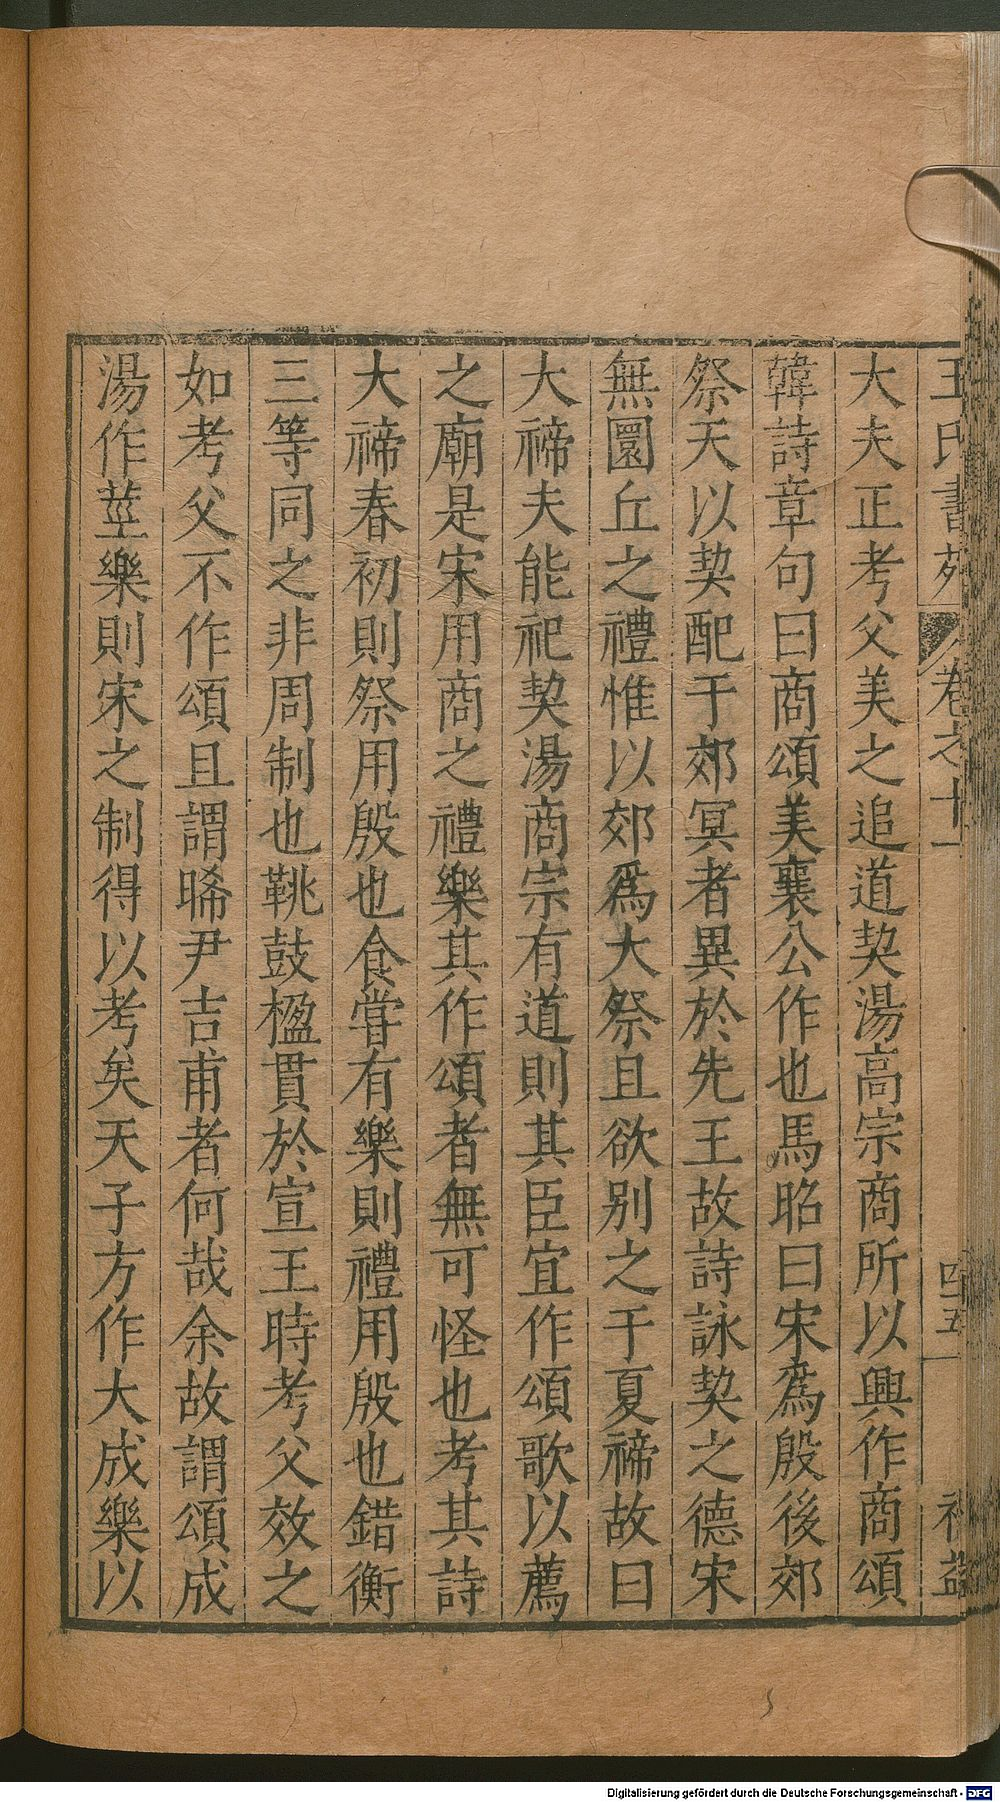 大夫正考父美之追道契湯高宗商所以興作商頌
韓詩章句曰商頌美襄公作也馬昭曰宋爲殷後郊
祭天以契配于郊冥者異於先王故詩詠契之德宋
無圜丘之禮惟以郊爲大祭且欲别之于夏禘故曰
大禘夫能祀契湯商宗有道則其臣宜作頌歌以薦
之廟是宋用商之禮樂其作頌者無可怪也考其詩
大禘春初則祭用殷也食嘗有樂則禮用殷也錯衡
三等同之非周制也鞉鼓楹貫於宣王時考父效之
如考父不作頌且謂睎尹吉甫者何哉余故謂頌成
湯作莖樂則宋之制得以考矣天子方作大成樂以
王氏書苑 卷之十
四五
Digitalisierung gefördert durch die Deutsche Forschungsgemeinschaft - DFG